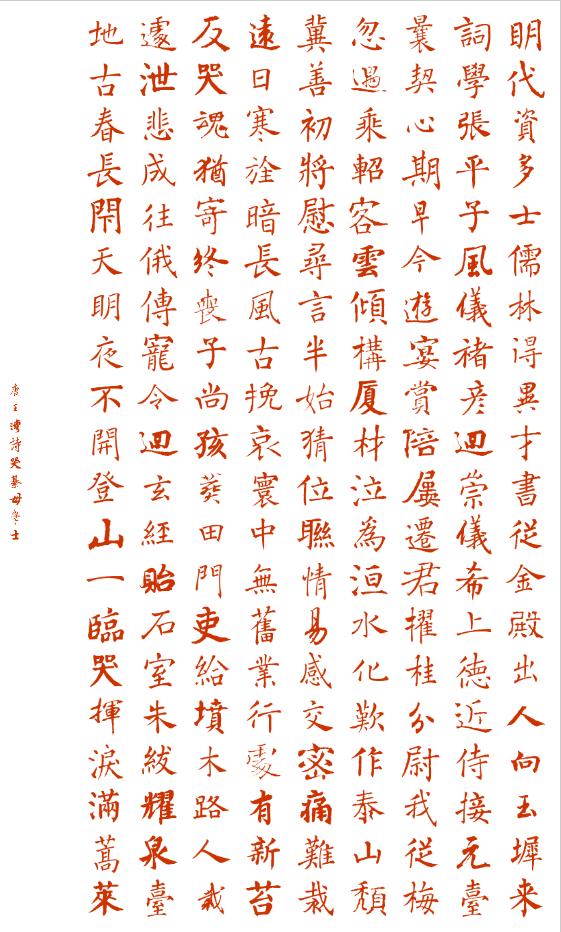 眀代資多士儒林淂異才書從金殿出人向玉墀来
詞學張平子風儀褚彦迴崇儀希上徳近侍接元臺
曩契心期早今遊宴賞陪屢遷君擢桂分尉我從梅
忽過乘軺客雲傾構厦材泣為洹水化歎作泰山頹
冀善初將慰尋言半始猜位聯情易感交密痛難裁
遠日寒旌暗長風古挽哀寰中無舊業行處有新苔
反哭魂猶寄終喪子尚孩葬田門吏給墳木路人栽
遽泄悲成往俄傳寵令迴玄經貽石室朱紱耀泉臺
地古春長閇天眀夜不開登山一臨哭揮淚滿蒿萊
唐王灣詩哭綦毋學士